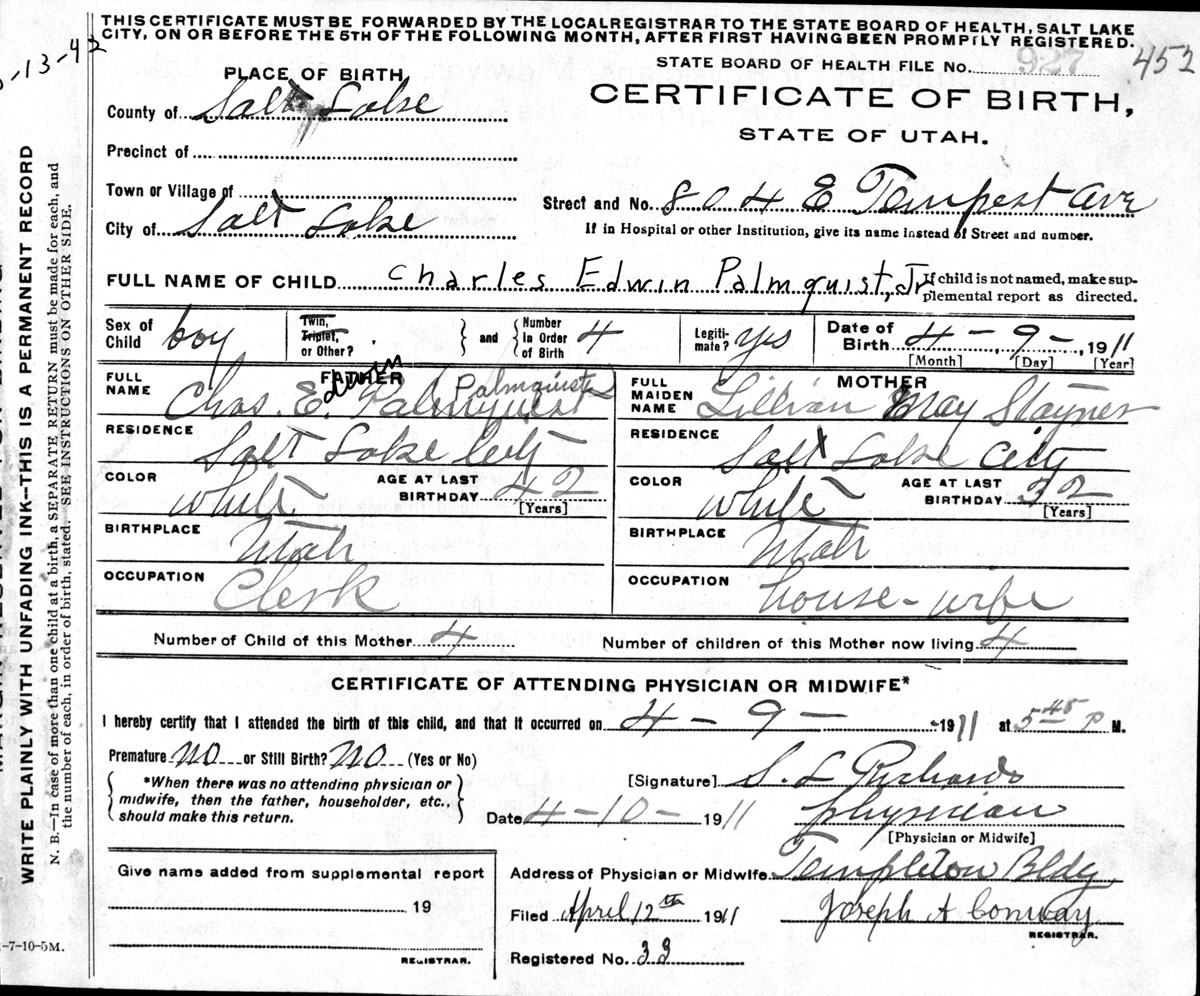 THIS CERTIFICATE MUST BE FORWARDED BY THE LOCAL REGISTRAR TO THE STATE BOARD OF HEALTH, SALT LAKE
CITY, ON OR BEFORE THE 5TH OF THE FOLLOWING MONTH, AFTER FIRST HAVING BEEN PROMPTLY REGISTERED.
-13-42
STATE BOARD OF HEALTH FILE No. 927 452
PLACE OF BIRTH,
CERTIFICATE OF BIRTH,
County of Salt Lake
STATE OF UTAH.
Precinct of
Town or Village of
Street and No. 804 E Tempest Ave
City of Salt Lake
If in Hospital or other Institution, give its name instead of Street and number.
FULL NAME OF CHILD Charles Edwin Palmquist, Jr.
If child is not named, make sup-
plemental report as directed.
Sex of Child boy
Twin, Triplet, or Other?
and
Number In Order of Birth 4
Legiti-mate? Yes
Date of Birth 4 - 9 -, 1911
[Month] [Day] [Year]
FATHER
FULL NAME Chas. Edwin Palmquist Palmquist
RESIDENCE Salt Lake City
COLOR White AGE AT LAST BIRTHDAY 42
[Years]
BIRTHPLACE Utah
OCCUPATION Clerk
MOTHER
FULL MAIDEN NAME Lillian May Stayner
RESIDENCE Salt Lake City
COLOR White AGE AT LAST BIRTHDAY 32
[Years]
BIRTHPLACE Utah
OCCUPATION house-wife
Number of Child of this Mother 4 Number of children of this Mother now living 4
CERTIFICATE OF ATTENDING PHYSICIAN OR MIDWIFE*
I hereby certify that I attended the birth of this child, and that it occurred on 4 - 9 - 1911 at 5 45 P M.
Premature No or Still Birth? No (Yes or No)
[Signature] S. L Richards
*When there was no attending physician or
midwife, then the father, householder, etc.,
should make this return.
Date 4-10- 1911 physician
[Physician or Midwife]
Address of Physician or Midwife Templeton Bldg
Give name added from supplemental report
19
REGISTRAR.
Filed April 12th 1911 Joseph A Conway
REGISTRAR.
Registered No. 33
WRITE PLAINLY WITH UNFADING INK--THIS IS A PERMANENT RECORD
N. B.—In case of more than one child at a birth, a SEPARATE RETURN must be made for each, and
the number of each, in order of birth, stated. SEE INSTRUCTIONS ON OTHER SIDE.
-7-10-5M.